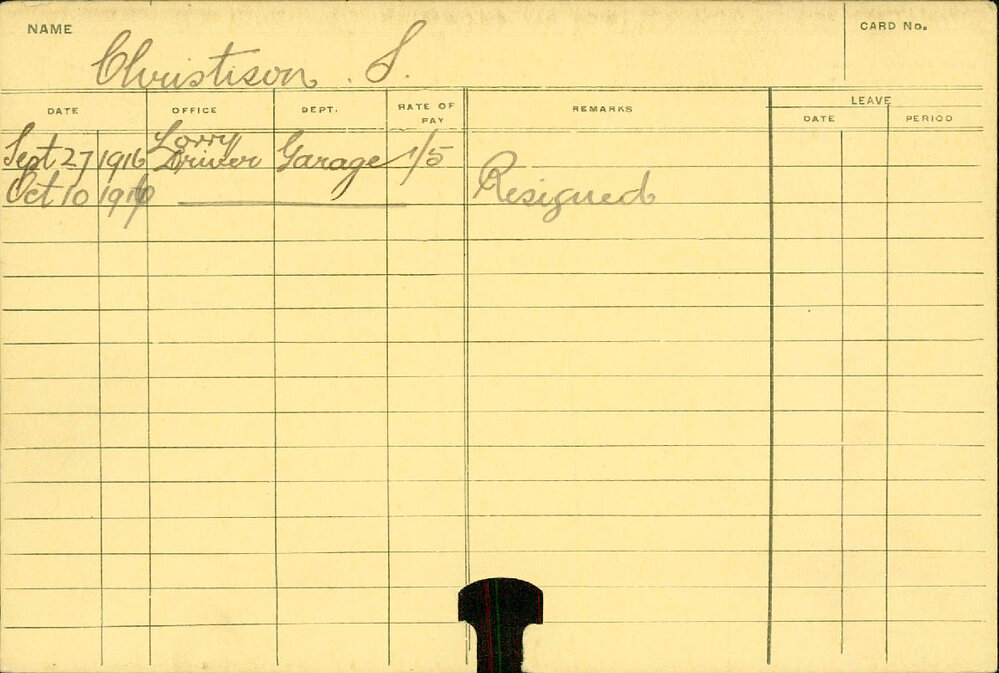 NAME
CARD No.
Christison. S.
DATE
OFFICE
DEPT.
RATE OF PAY
REMARKS
LEAVE
DATE
PERIOD
Sept 27 1916 Lorry Driver Garage 1/5
Oct 10 1916 Resigned